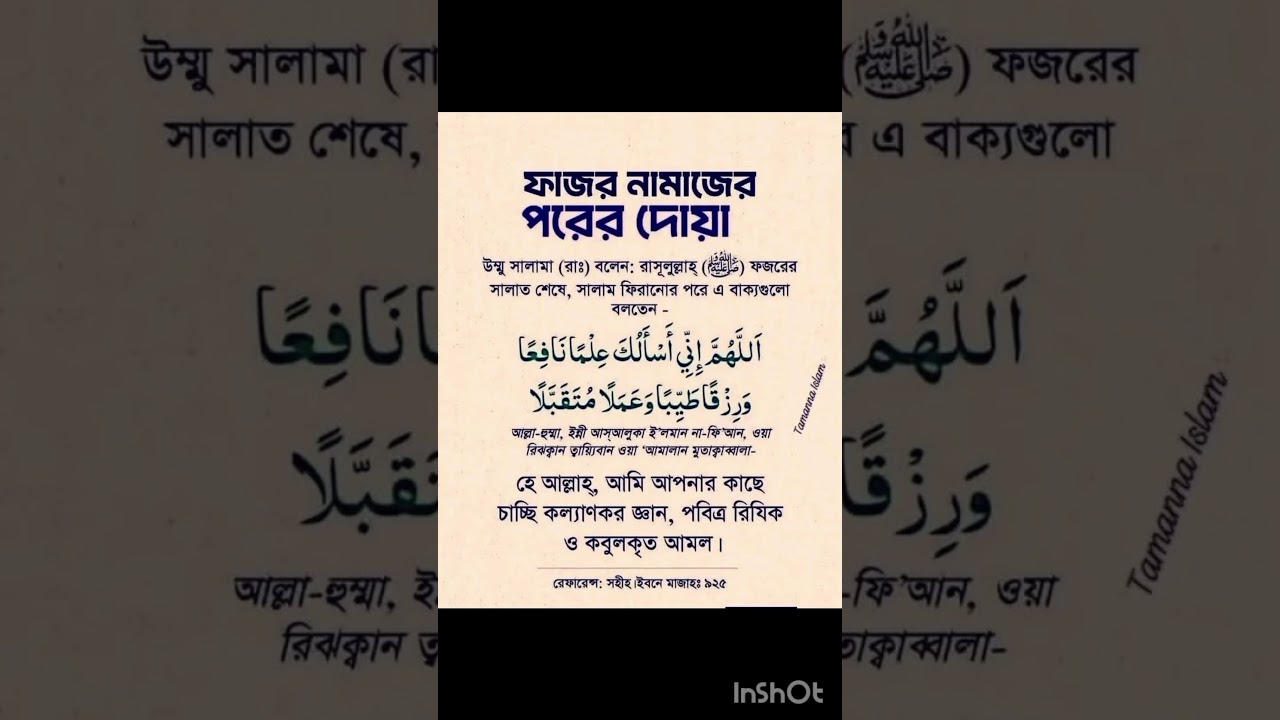 ফাজর নামাজের
পরের দোয়া
উম্মু সালামা (রাঃ) বলেন: রাসূলুল্লাহ্ (ﷺ) ফজরের
সালাত শেষে, সালাম ফিরানোর পরে এ বাক্যগুলো
বলতেন -
اَللَّهُمَّ إِنِّي أَسْأَلُكَ عِلْمًا نَافِعًا
وَرِزْقًا طَيِّبًا وَعَمَلًا مُتَقَبَّلًا
আল্লা-হুম্মা, ইন্নী আস্আলুকা ই'লমান না-ফি'আন, ওয়া
রিঝক্বান ত্বায়্যিবান ওয়া 'আমালান মুতাক্বাব্বালা-
হে আল্লাহ্, আমি আপনার কাছে
চাচ্ছি কল্যাণকর জ্ঞান, পবিত্র রিযিক
ও কবুলকৃত আমল।
রেফারেন্স: সহীহ।ইবনে মাজাহঃ ৯২৫
Tamanna Islam
উম্মু সালামা (রা
(ﷺ) ফজরের
সালাত শেষে,
র এ বাক্যগুলো
اَللَّهُمَّ
نَافِعًا
وَرِزْقًا
تَقَبَّلًا
আল্লা-হুম্মা, ই
-ফি'আন, ওয়া
রিঝক্বান ত্ব
তাক্বাব্বালা-
Tamanna Islam
InShOt